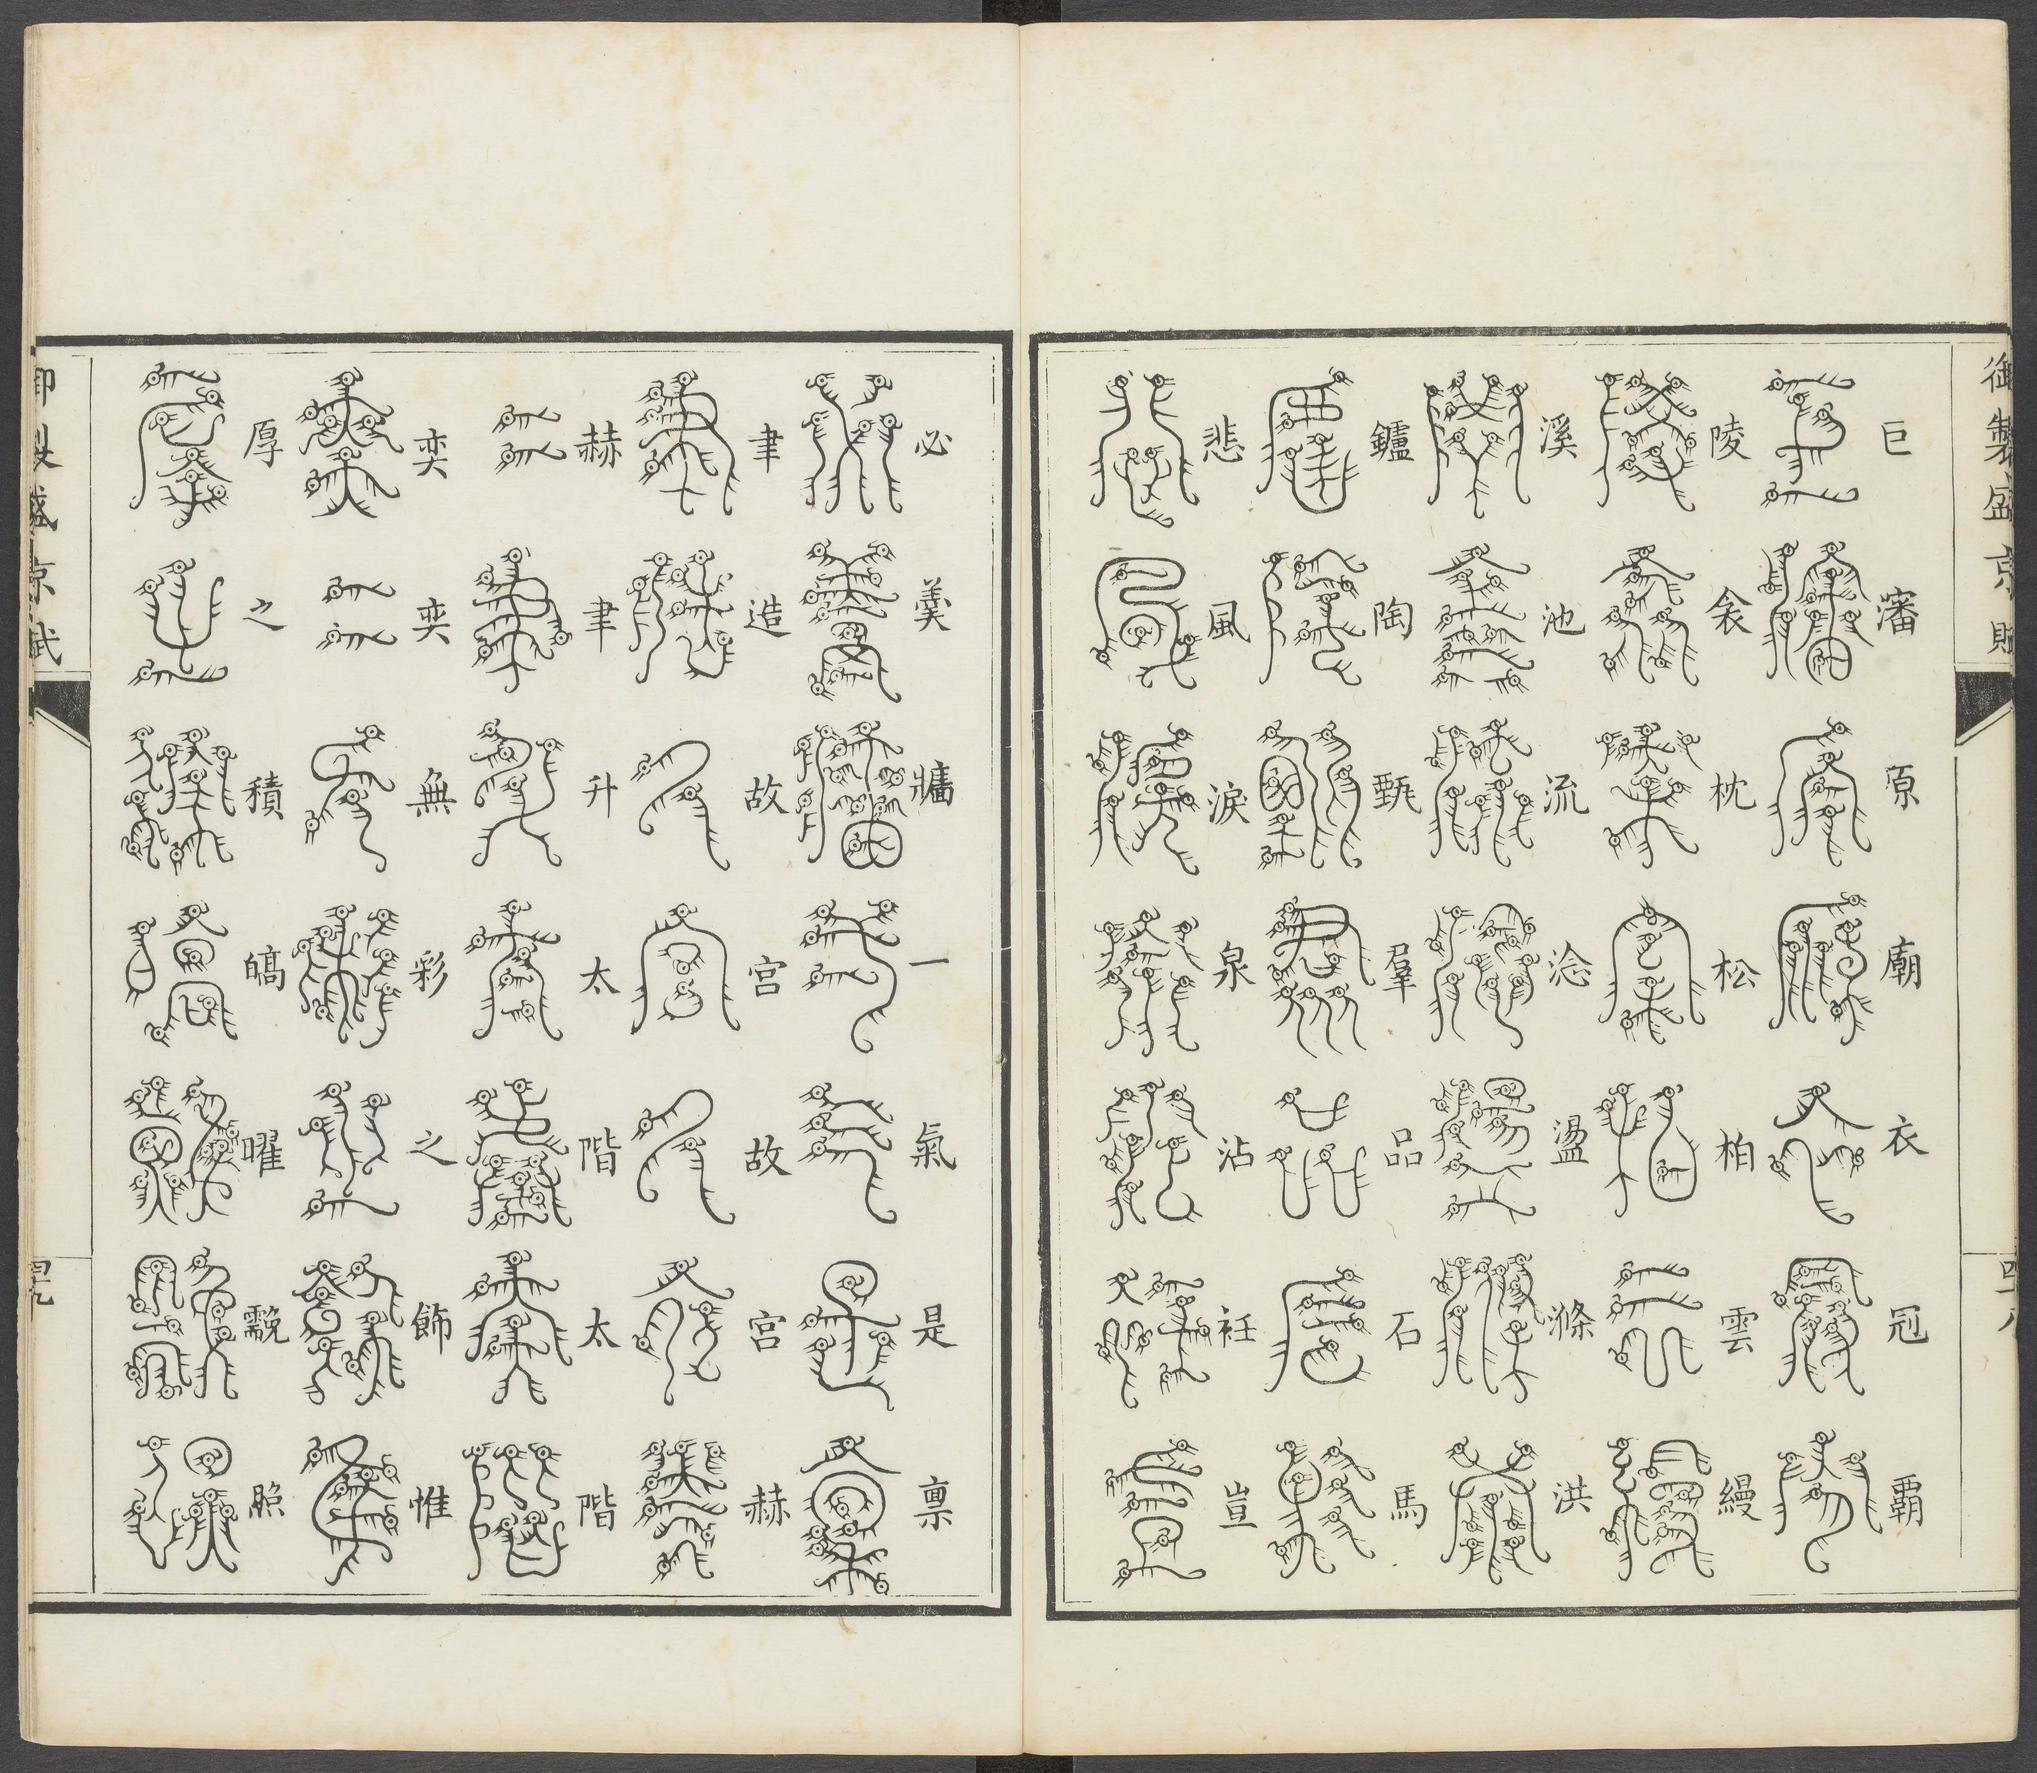 御製盛京賦
四十八
巨瀋原廟衣冠霸
陵衾枕松柏雲縵
溪池流淰盪滌洪
鑪陶甄羣品石馬
悲風淚泉沾衽豈
必羹牆一氣是稟
聿造故宮故宮赫
赫聿升太階太階
奕奕無彩之飾惟
厚之積皜曜照
御製盛京賦